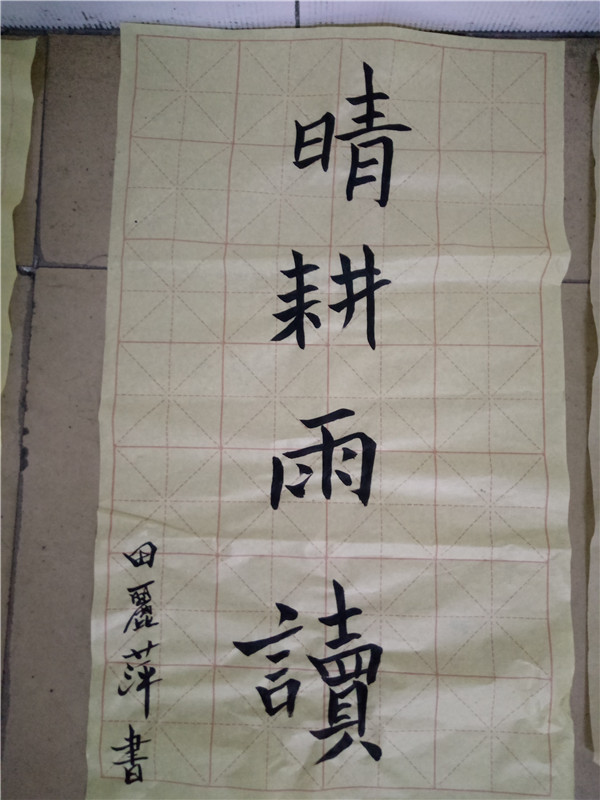 晴耕雨讀
田麗萍書